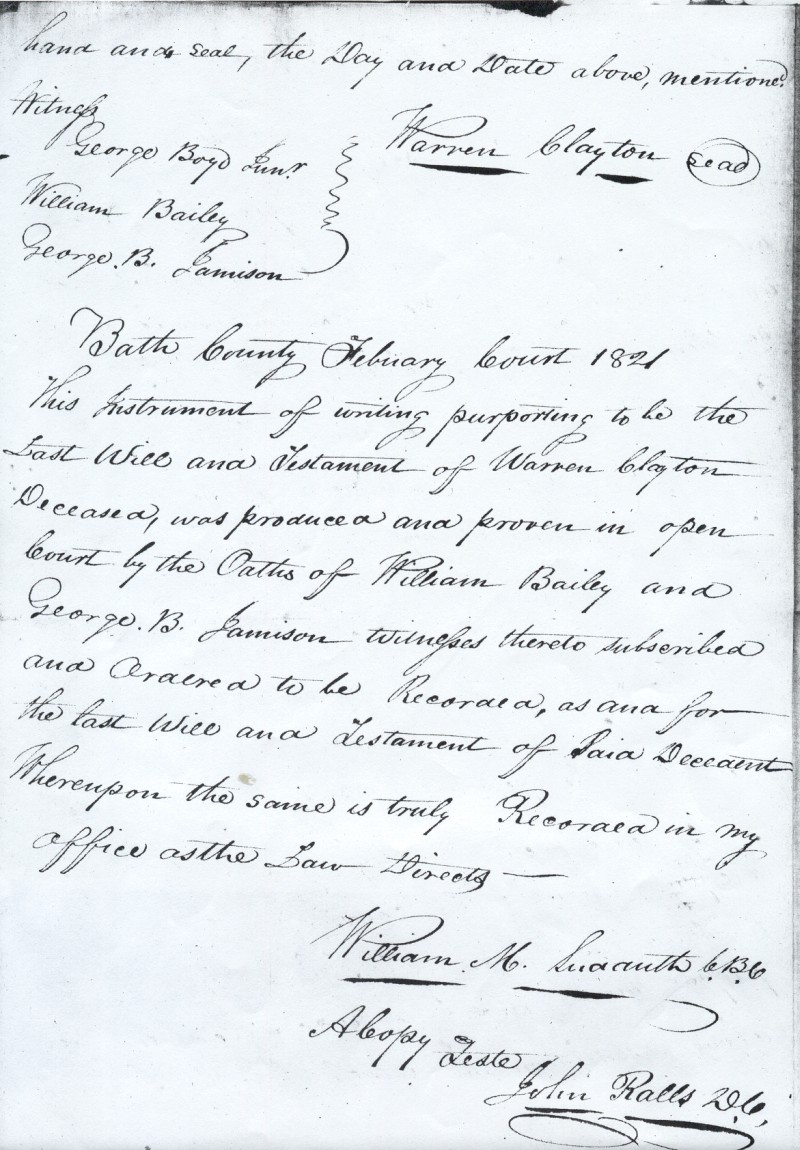 hand and seal, the Day and Date above, mentioned
Witness
George Boyd Junr
Warren Clayton seal
William Bailey
George. B. Jamison
Bath County Febuary Court 1821
This Instrument of writing purporting to be the
Last Will and Testament of Warren Clayton
Deceased, was produced and proven in open
Court by the Oaths of William Bailey and
George. B. Jamison witnesses thereto subscribed
and Ordered to be Recorded, as and for
the last Will and Testament of Said Decedent
Whereupon the same is truly Recorded in my
office as the Law Directs
William. M. Sudduth C.B.C
A Copy Teste
John Ralls D.C,